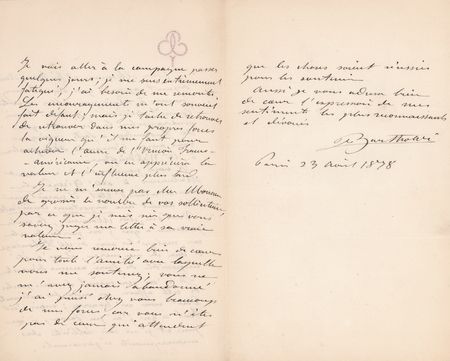 Je vais aller à la campagne passer
quelques jours; je me sens extrêmement
fatigué, j'ai besoin de me remonter.
Les encouragements m'ont souvent
fait défaut; mais je tache de retrouver
de retrouver dans mes propres forces
la vigueur qu'il me faut pour
achever l'œuvre de l'Union Franco-
américaine, on en appréciera la
valeur et l'influence plus tard.
Je ne m'excuse pas cher Monsieur
de grossir le nombre de vos
par ce que je sais que vous
savez juger ma lettre à sa vraie
valeur.
Je vous remercie bien de cœur
pour toute l'amitié avec laquelle
vous me soutenez; vous ne
m'avez jamais abandonné
j'ai puisé chez vous beaucoup
de mes forces, car vous n'êtes
pas de ceux qui attendent
que les choses soient réussies
pour les soutenir
Aussi, je vous adresse bien
de cœur l'expression de mes
sentiments les plus reconnaissants
et dévoués
Bartholdi
Paris 23 avril 1878